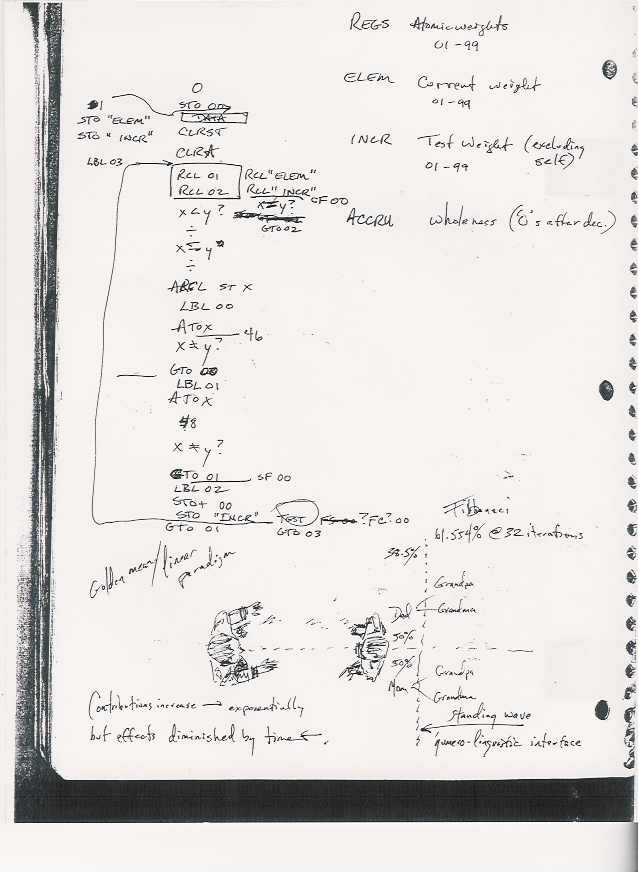 REGS Atomic weights
01-99
ELEM Current weight
01-99
INCR Test Weight (excluding self)
01-99
ACCRU wholeness ('0's after dec.)
0
1
STO "ELEM"
STO "INCR"
LBL 03
STO 00
DATA
CLRST
CLRA
RCL 01 RCL "ELEM"
RCL 02 RCL "INCR"
x≠y? SF 00
GTO 02
x<y?
÷
x≤y
÷
ARCL ST X
LBL 00
ATOX 46
x≠y?
GTO 00
LBL 01
ATOX
48
x≠y?
GTO 01 SF 00
LBL 02
STO+ 00
STO "INCR" TEST FS 00? FC? 00
GTO 01 GTO 03
Fibbonaci
61.554% @ 32 iterations
38.5%
Golden mean/linear paradigm
Grandpa
Dad Grandma
50%
50%
Grandpa
Mom Grandma
Standing wave
numero-linguistic interface
Contributions increase → exponentially
but effects diminished by time ←.